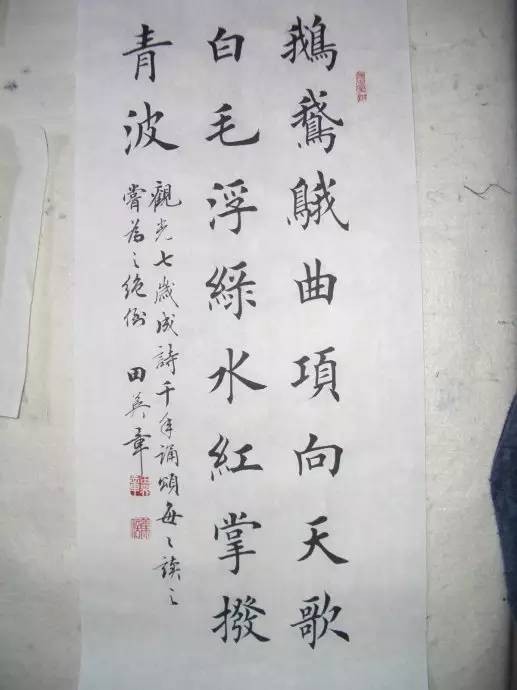 鵝鵞䳘曲項向天歌
白毛浮綠水紅掌撥
青波
觀光七歲成詩千年誦頌每々讀之
嘗為之絶倒 田英章